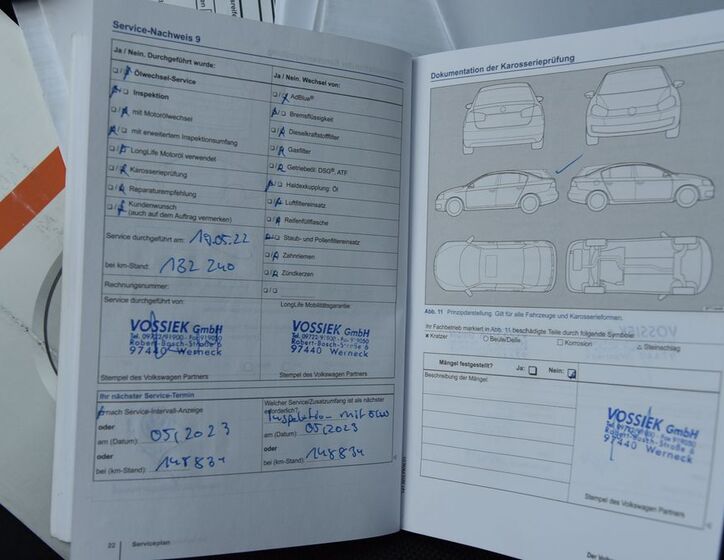 Service-Nachweis 9
Ja / Nein. Durchgeführt wurde:
Ölwechsel-Service
Inspektion
mit Motorölwechsel
mit erweitertem Inspektionsumfang
LongLife Motoröl verwendet
Karosserieprüfung
Reparaturempfehlung
Kundenwunsch
(auch auf dem Auftrag vermerken)
Service durchgeführt am: 19.05.22
bei km-Stand: 132 240
Rechnungsnummer:
Service durchgeführt von:
VOSSIEK GmbH
Tel. 09722/91900 - Fax 919050
Robert-Bosch-Straße 6
97440 Werneck
Stempel des Volkswagen Partners
Ja / Nein. Wechsel von:
AdBlue®
Bremsflüssigkeit
Dieselkraftstofffilter
Gasfilter
Getriebeöl: DSG®, ATF
Haldexkupplung: Öl
Luftfiltereinsatz
Reifenfüllflasche
Staub- und Pollenfiltereinsatz
Zahnriemen
Zündkerzen
LongLife Mobilitätsgarantie
VOSSIEK GmbH
Tel. 09722/91900 - Fax 919050
Robert-Bosch-Straße 6
97440 Werneck
Stempel des Volkswagen Partners
Ihr nächster Service-Termin
nach Service-Intervall-Anzeige
oder
am (Datum): 05/2023
oder
bei (km-Stand): 148834
Welcher Service/Zusatzumfang ist als nächster
erforderlich?
Inspektion mit
am (Datum): 05/2023
oder
bei (km-Stand): 148834
22 Serviceplan
Dokumentation der Karosserieprüfung
Abb. 11 Prinzipdarstellung: Gilt für alle Fahrzeuge und Karosserieformen.
Ihr Fachbetrieb markiert in Abb. 11 beschädigte Teile durch folgende Symbole:
× Kratzer ○ Beule/Delle □ Korrosion △ Steinschlag
Mängel festgestellt? Ja: Nein:
Beschreibung der Mängel:
VOSSIEK GmbH
Tel. 09722/91900 - Fax 919050
Robert-Bosch-Straße 6
97440 Werneck
Stempel des Volkswagen Partners